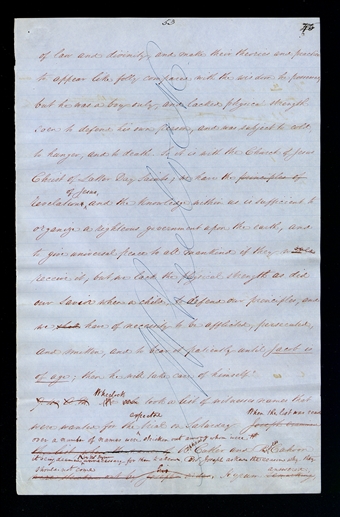 53
of law and divinity, and make their theories and practice
to appear like folly compared with the wisdom he possessed,
but he was a boy only, and lacked physical strength
even to defend his own person, and was subject to cold,
to hunger, and to death. So it is with the Church of Jesus
Christ of Latter Day Saints; we have the
of Jesus,
revelation and the knowledge within us is sufficient to
organize a righteous government upon the earth, and
to give universal peace to all mankind if they would
receive it, but we lack the physical strength as did
our Savior when a child, to defend our principles, and
we have of necessity to be afflicted, persecuted
and smitten, and to bear it patiently until Jacob is
of age; then he will take care of himself.
Wheelock
took a list of witnesses names that
When the list was read
were wanted for the trial on Saturday.
over a number of names were stricken out among whom were
B. Cutler and R. Cahoon
it being deemed unnecessary for him to attend. Bro. Joseph
should not come
Hyrum